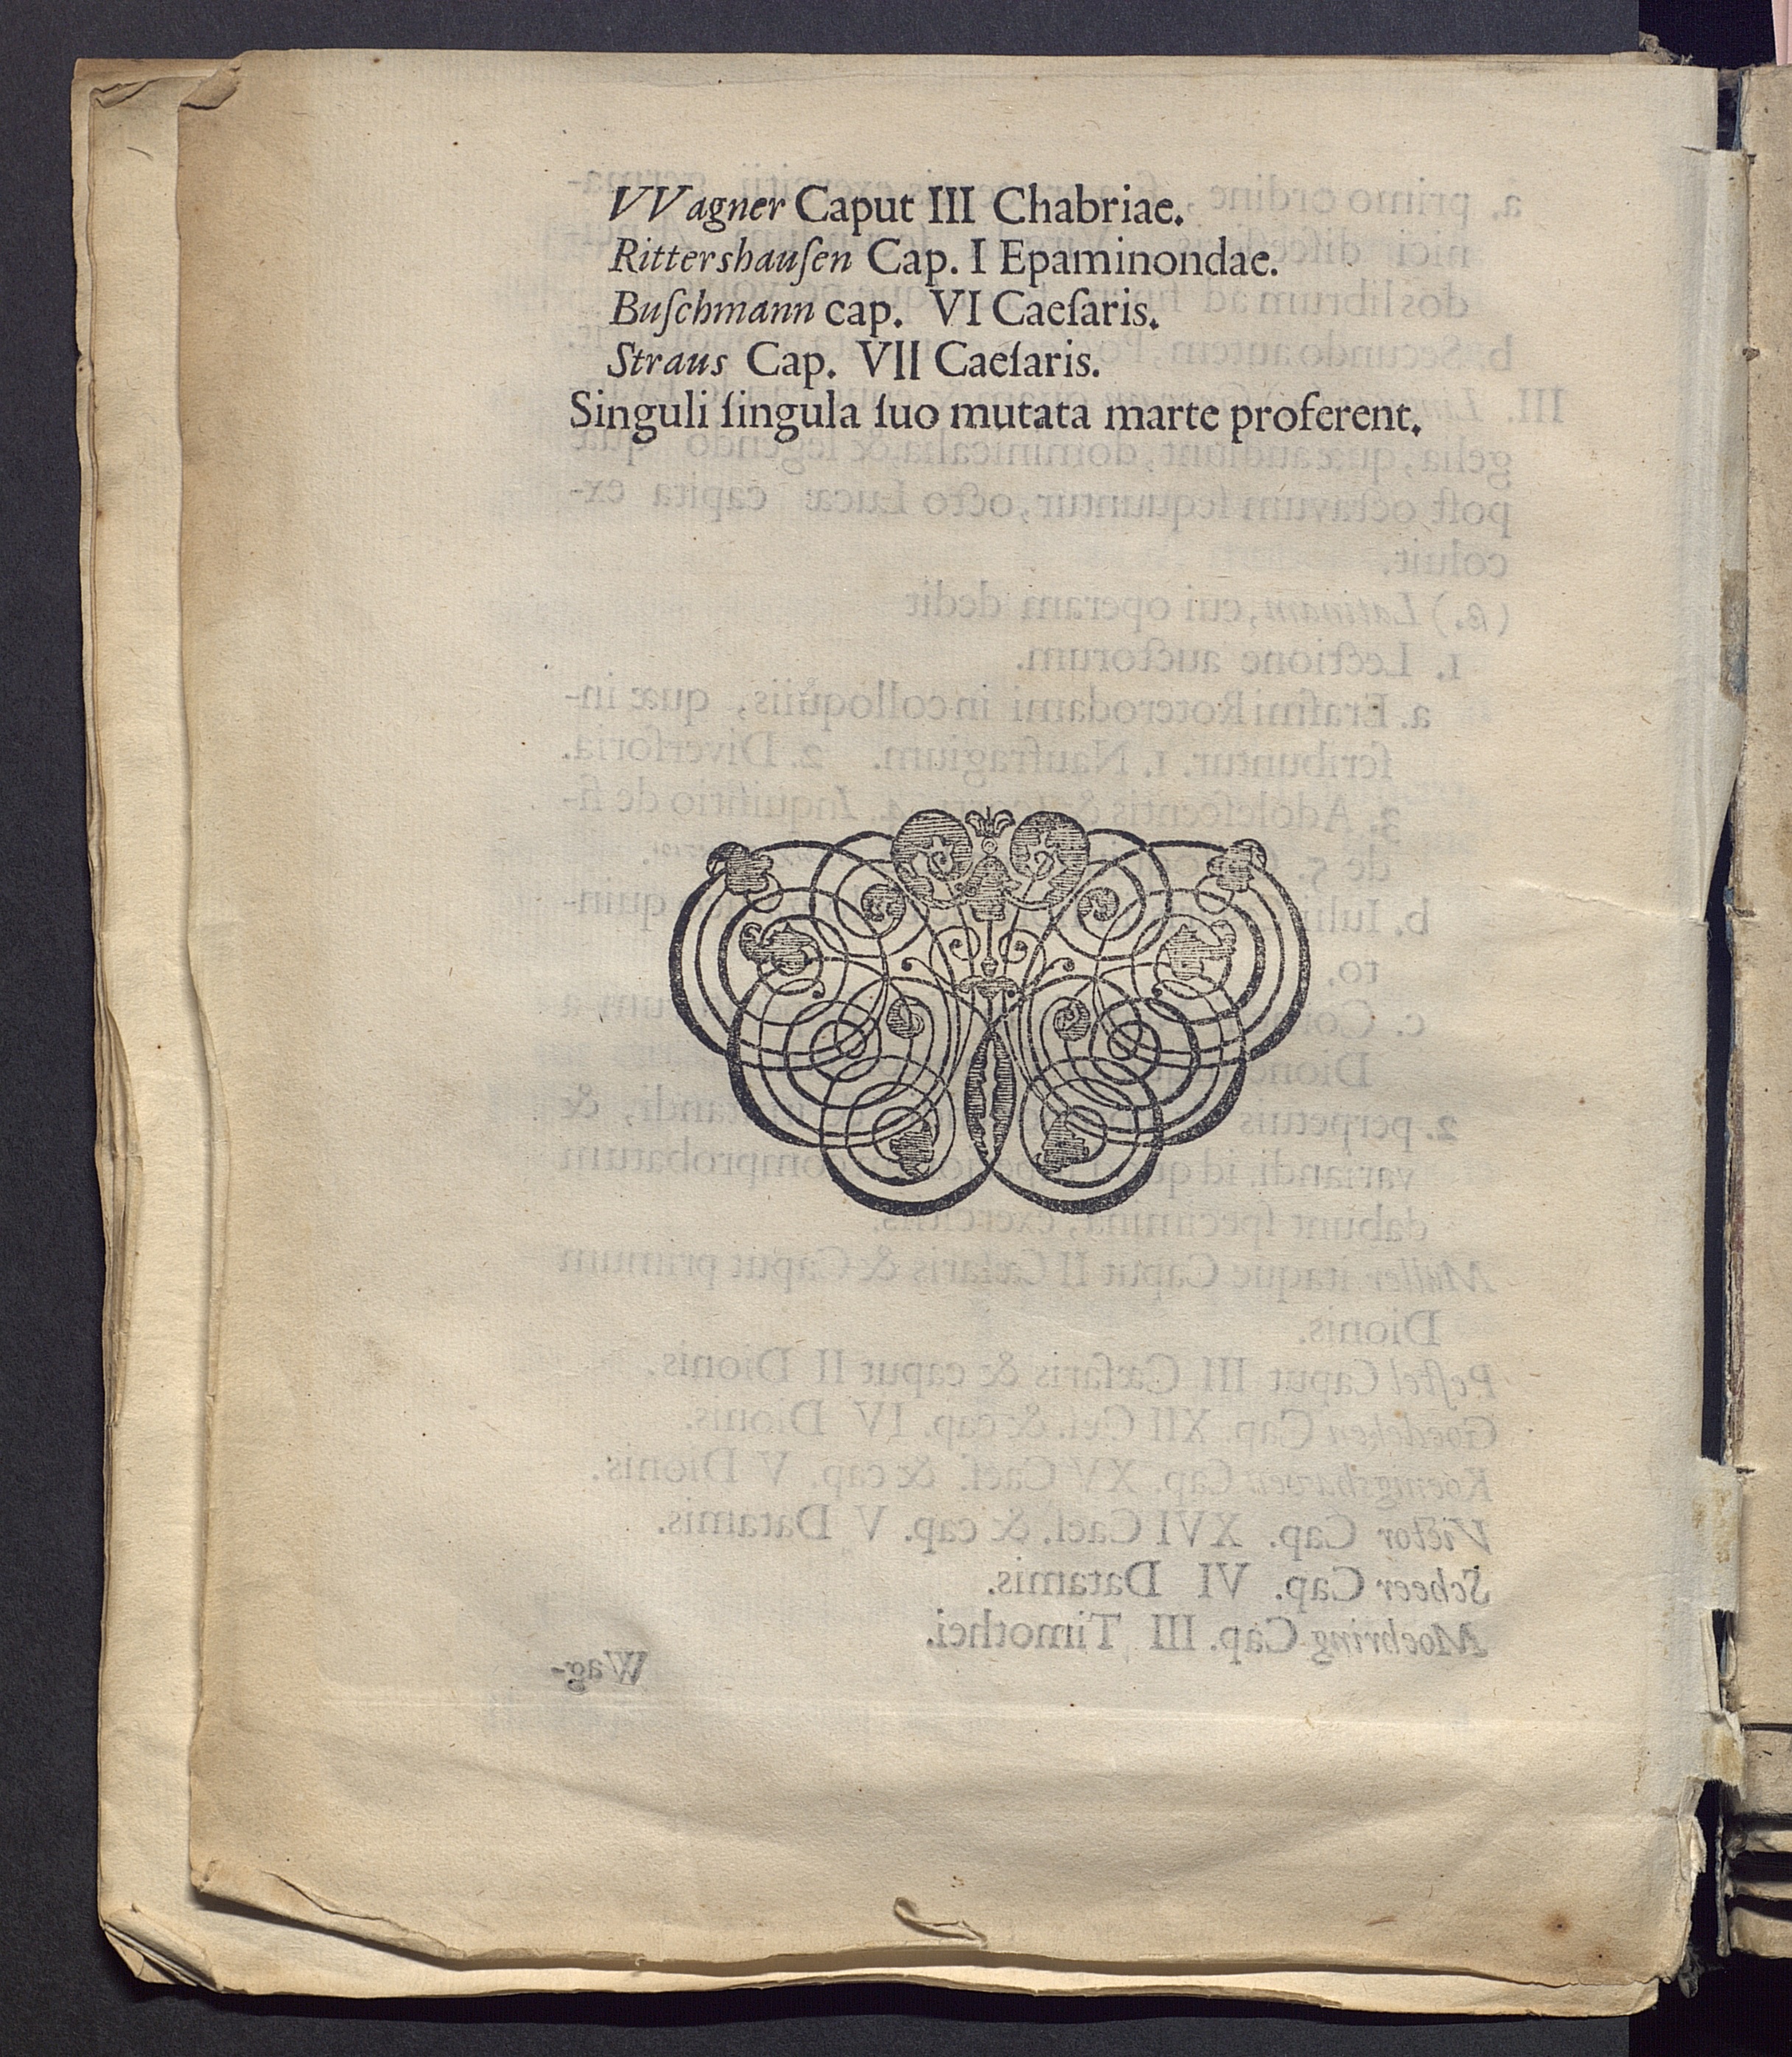 VVagner Caput III Chabriae.
Rittershauſen Cap. I Epaminondae.
Buſchmann cap. VI Caeſaris.
Straus Cap. VII Caeſaris.
Singuli ſingula ſuo mutata marte proferent.